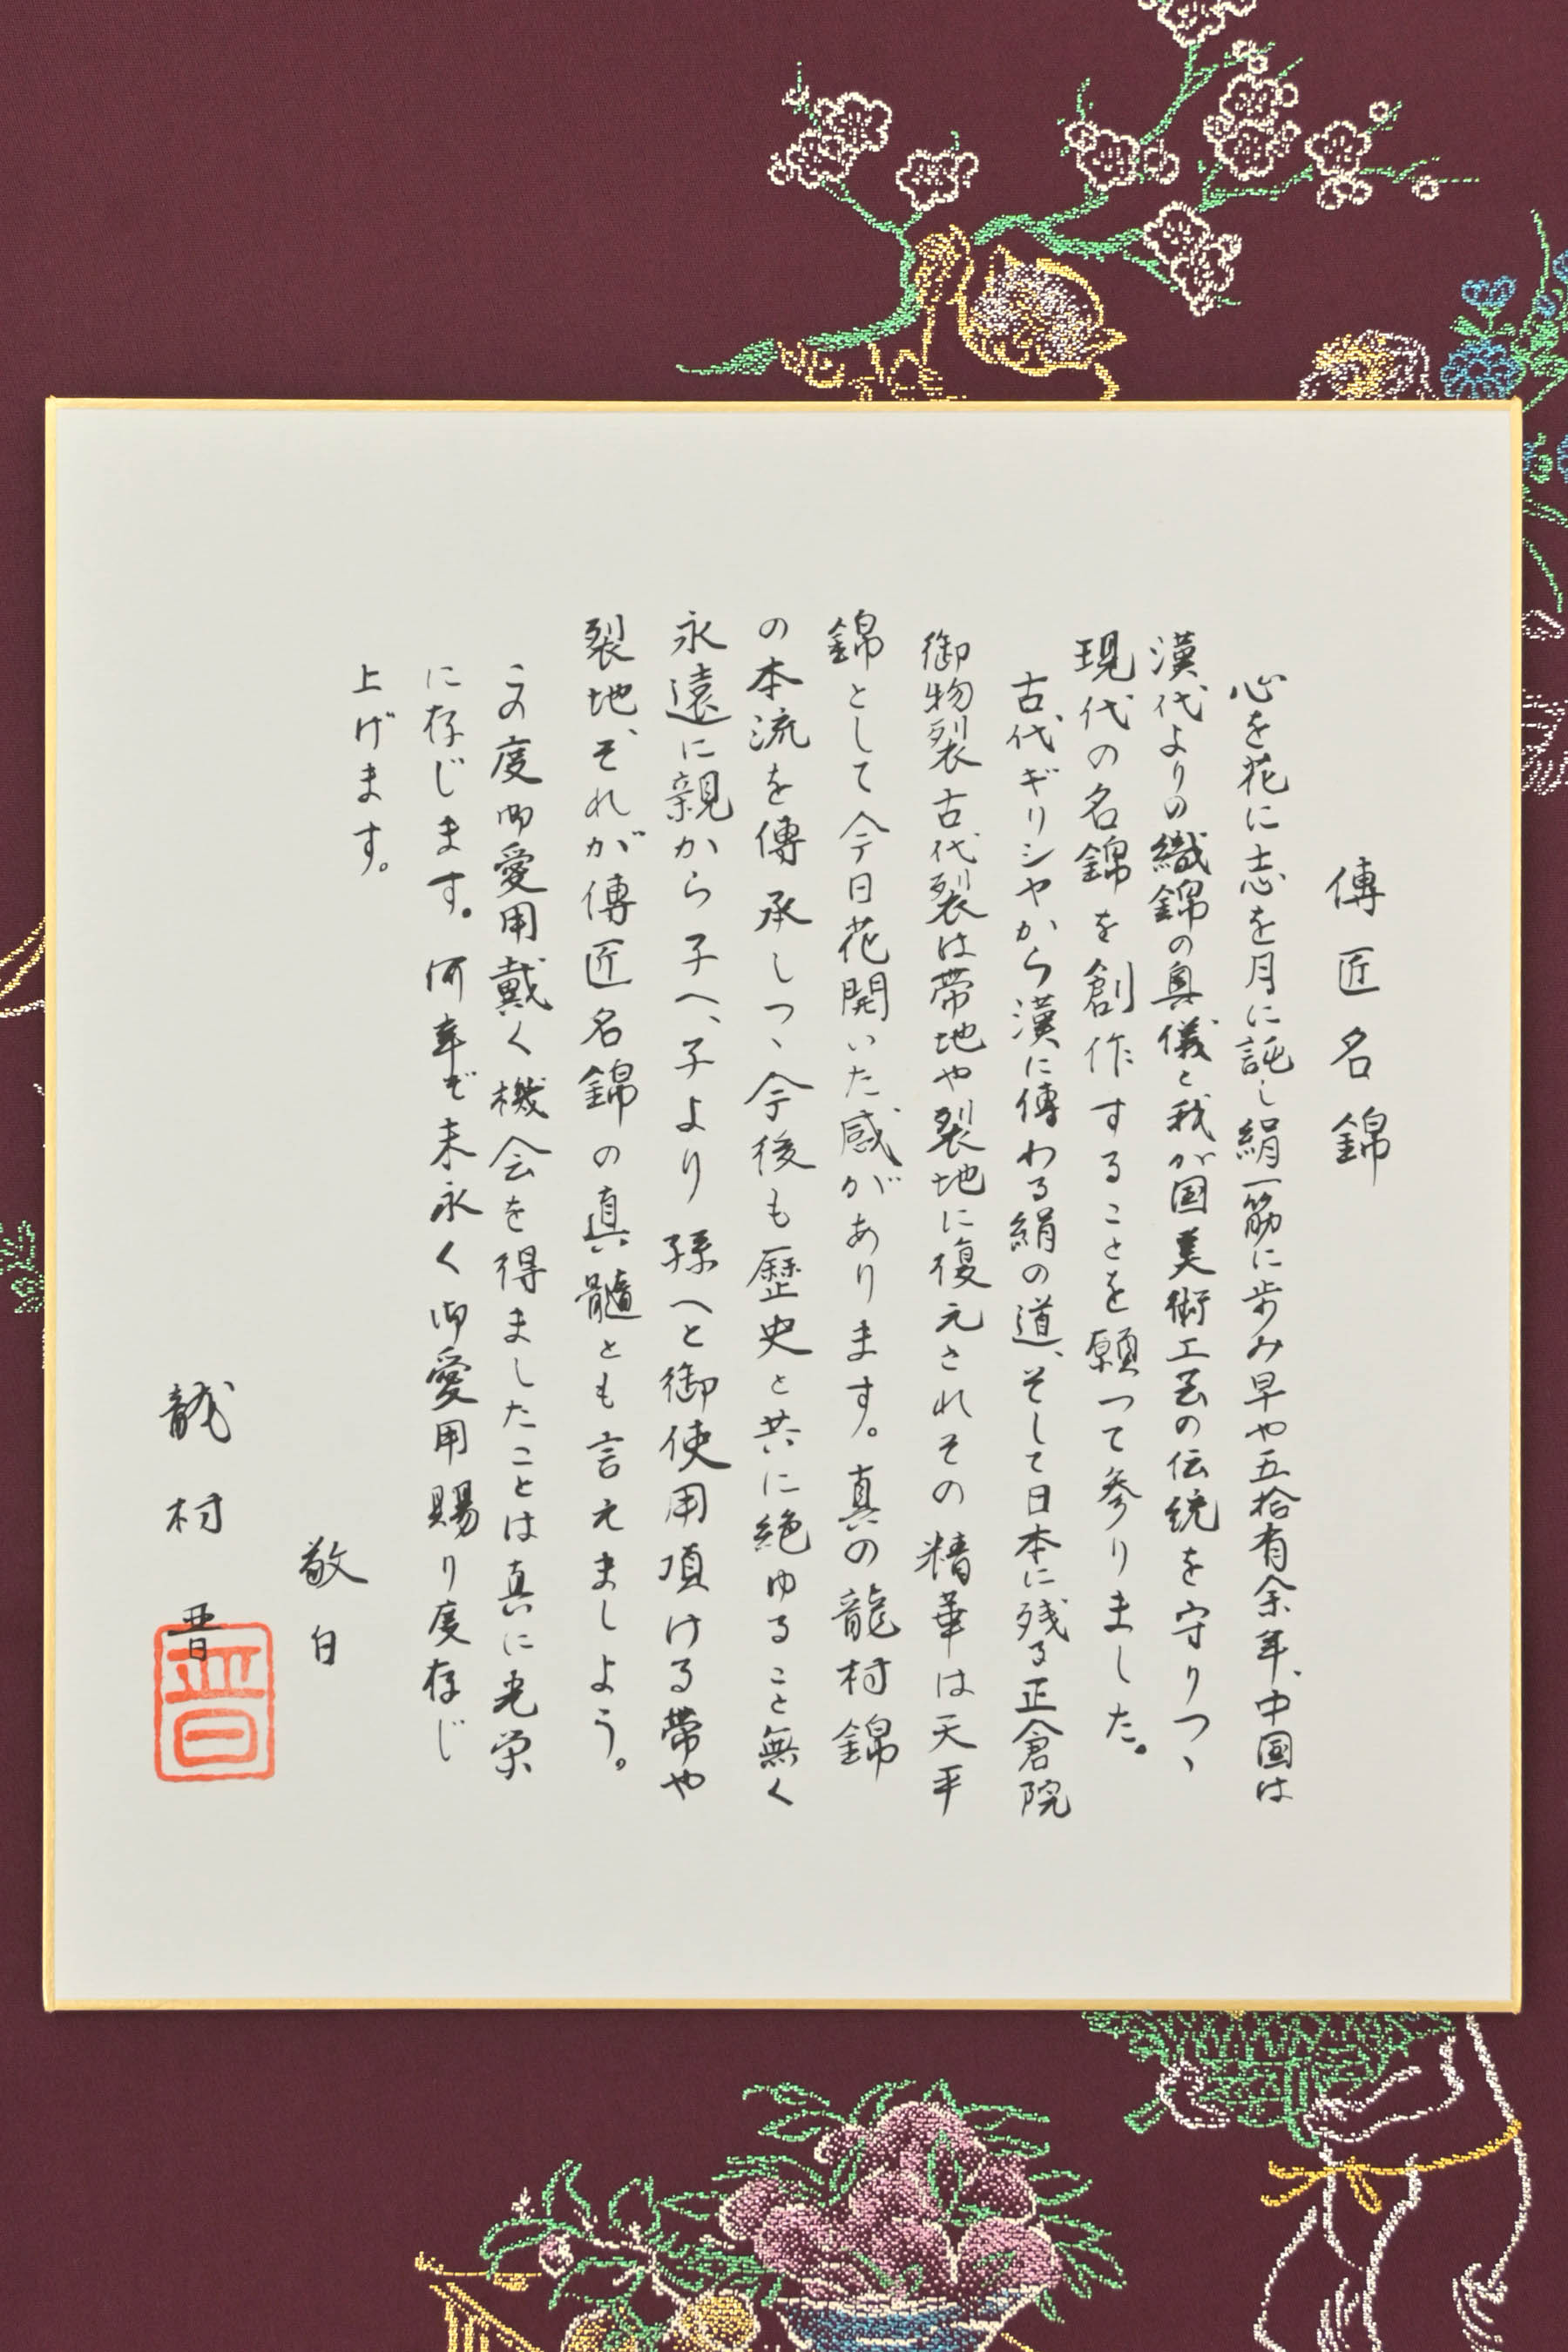 傳匠名錦
心を花に志を月に託し絹一筋に歩み早や五拾有余年、中国は
漢代よりの織錦の奥儀と我が国美術工芸の伝統を守りつゝ
現代の名錦を創作することを願って参りました。
古代ギリシヤから漢に傳わる絹の道、そして日本に残る正倉院
御物裂古代裂は帯地や裂地に復元されその精華は天平
錦として今日花開いた感があります。真の龍村錦
の本流を傳承しつゝ今後も歴史と共に絶ゆること無く
永遠に親から子へ、子より孫へと御使用頂ける帯や
裂地、それが傳匠名錦の真髓とも言えましよう。
この度御愛用戴く機会を得ましたことは真に光栄
に存じます。何卒ぞ末永く御愛用賜り度存じ
上げます。
敬白
龍村晋
晋